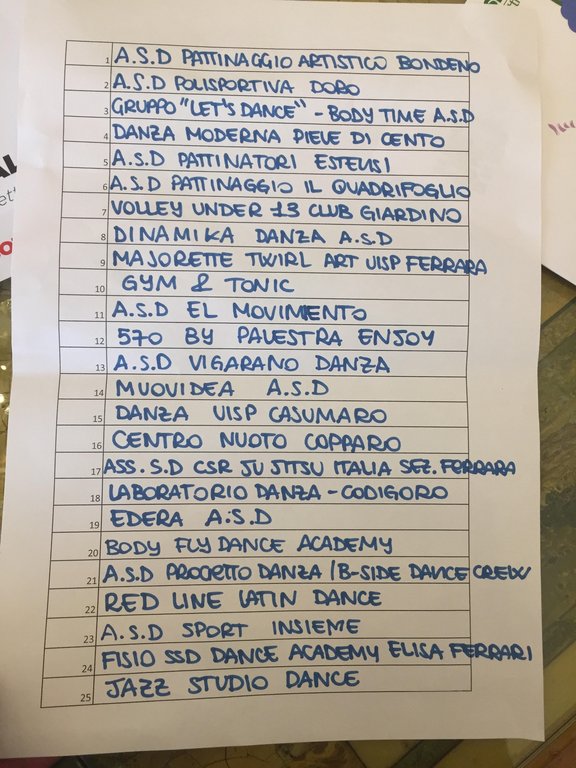 1 A.S.D PATTINAGGIO ARTISTICO BONDENO
2 A.S.D POLISPORTIVA DORO
3 GRUPPO "LET'S DANCE" - BODY TIME A.S.D
4 DANZA MODERNA PIEVE DI CENTO
5 A.S.D PATTINATORI ESTENSI
6 A.S.D PATTINAGGIO IL QUADRIFOGLIO
7 VOLLEY UNDER 13 CLUB GIARDINO
8 DINAMIKA DANZA A.S.D
9 MAJORETTE TWIRL ART UISP FERRARA
10 GYM & TONIC
11 A.S.D EL MOVIMENTO
12 570 BY PALESTRA ENJOY
13 A.S.D VIGARANO DANZA
14 MUOVIDEA A.S.D
15 DANZA UISP CASUMARO
16 CENTRO NUOTO COPPARO
17 ASS. S.D CSR JU JITSU ITALIA SEZ. FERRARA
18 LABORATORIO DANZA - CODIGORO
19 EDERA A.S.D
20 BODY FLY DANCE ACADEMY
21 A.S.D PROGETTO DANZA / B-SIDE DANCE CREW
22 RED LINE LATIN DANCE
23 A.S.D SPORT INSIEME
24 FISIO SSD DANCE ACADEMY ELISA FERRARI
25 JAZZ STUDIO DANCE